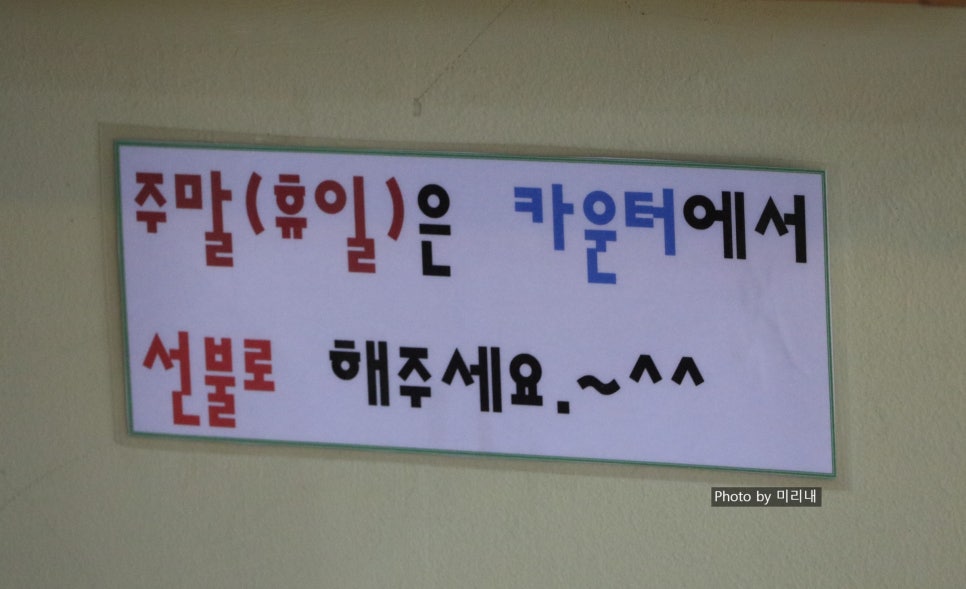 주말(휴일)은 카운터에서
선불로 해주세요.~^^
Photo by 미리내